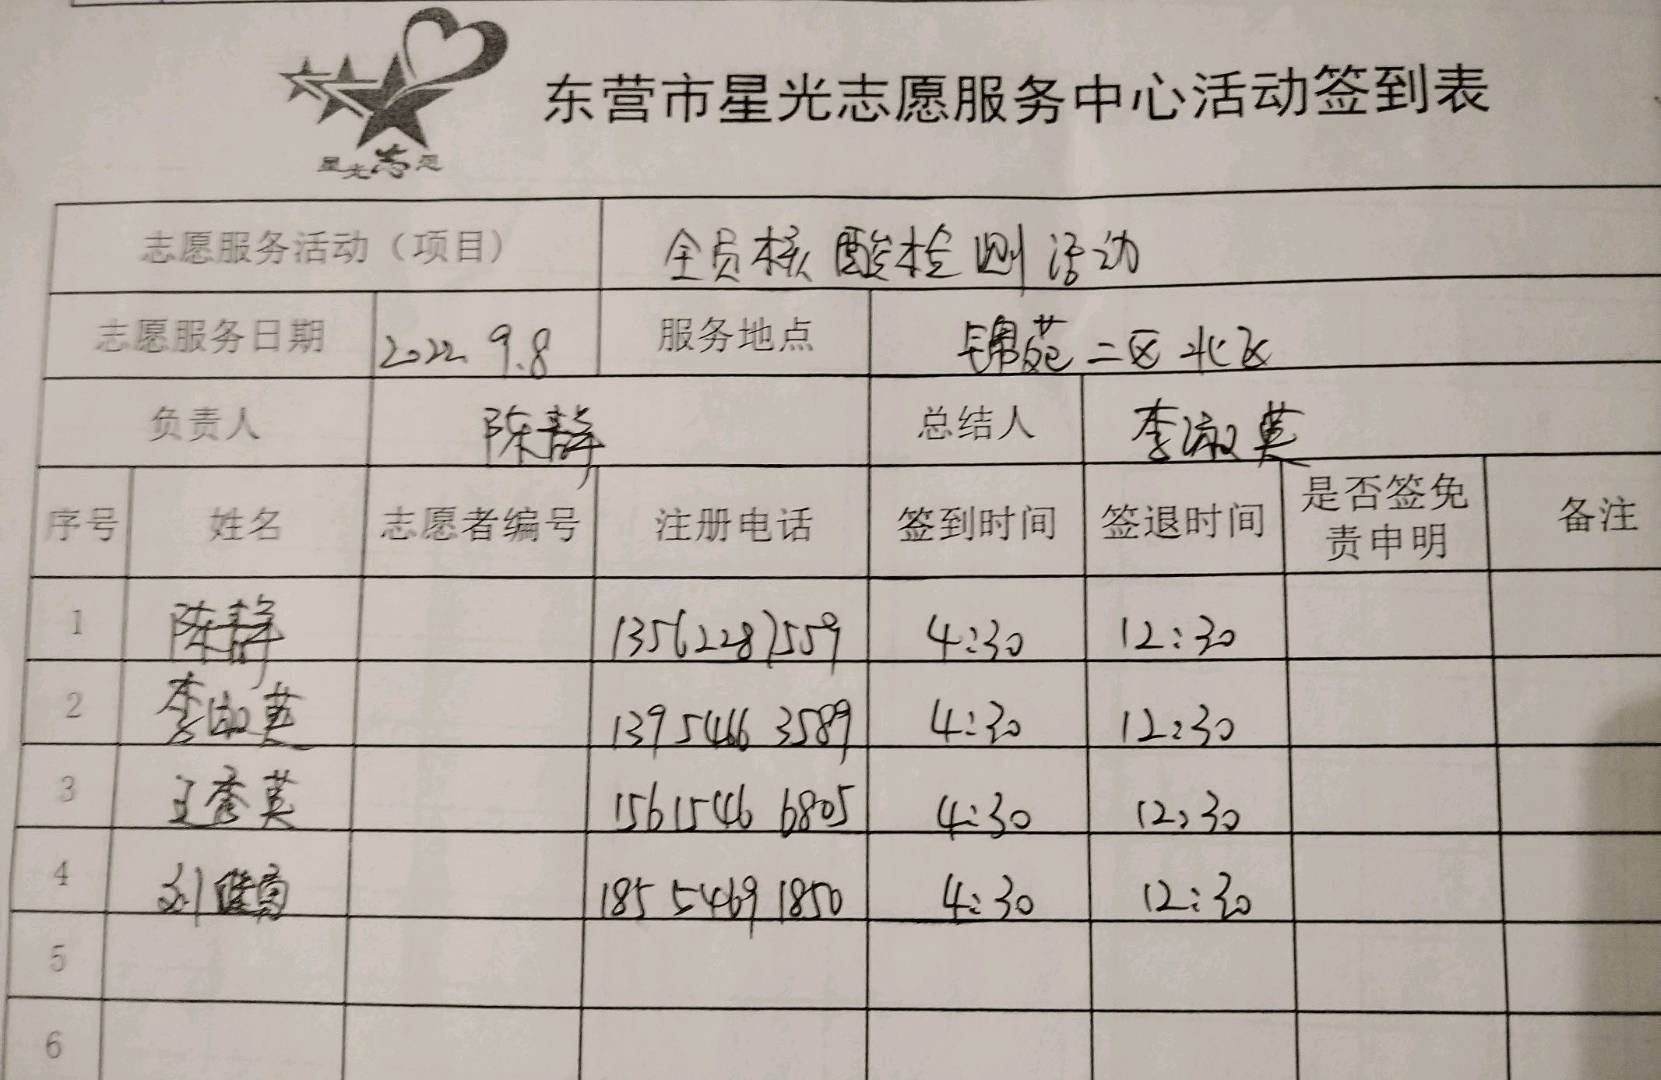 星光志愿
东营市星光志愿服务中心活动签到表
志愿服务活动（项目） 全员核酸检测活动
志愿服务日期 2022 9.8 服务地点 锦苑二区北区
负责人 陈静 总结人 李淑英
序号 姓名 志愿者编号 注册电话 签到时间 签退时间 是否签免责申明 备注
1 陈静 13562287559 4:30 12:30
2 李淑英 139 5466 3589 4:30 12:30
3 王秀英 156 1546 6805 4:30 12:30
4 刘 185 5469 1850 4:30 12:30
5
6